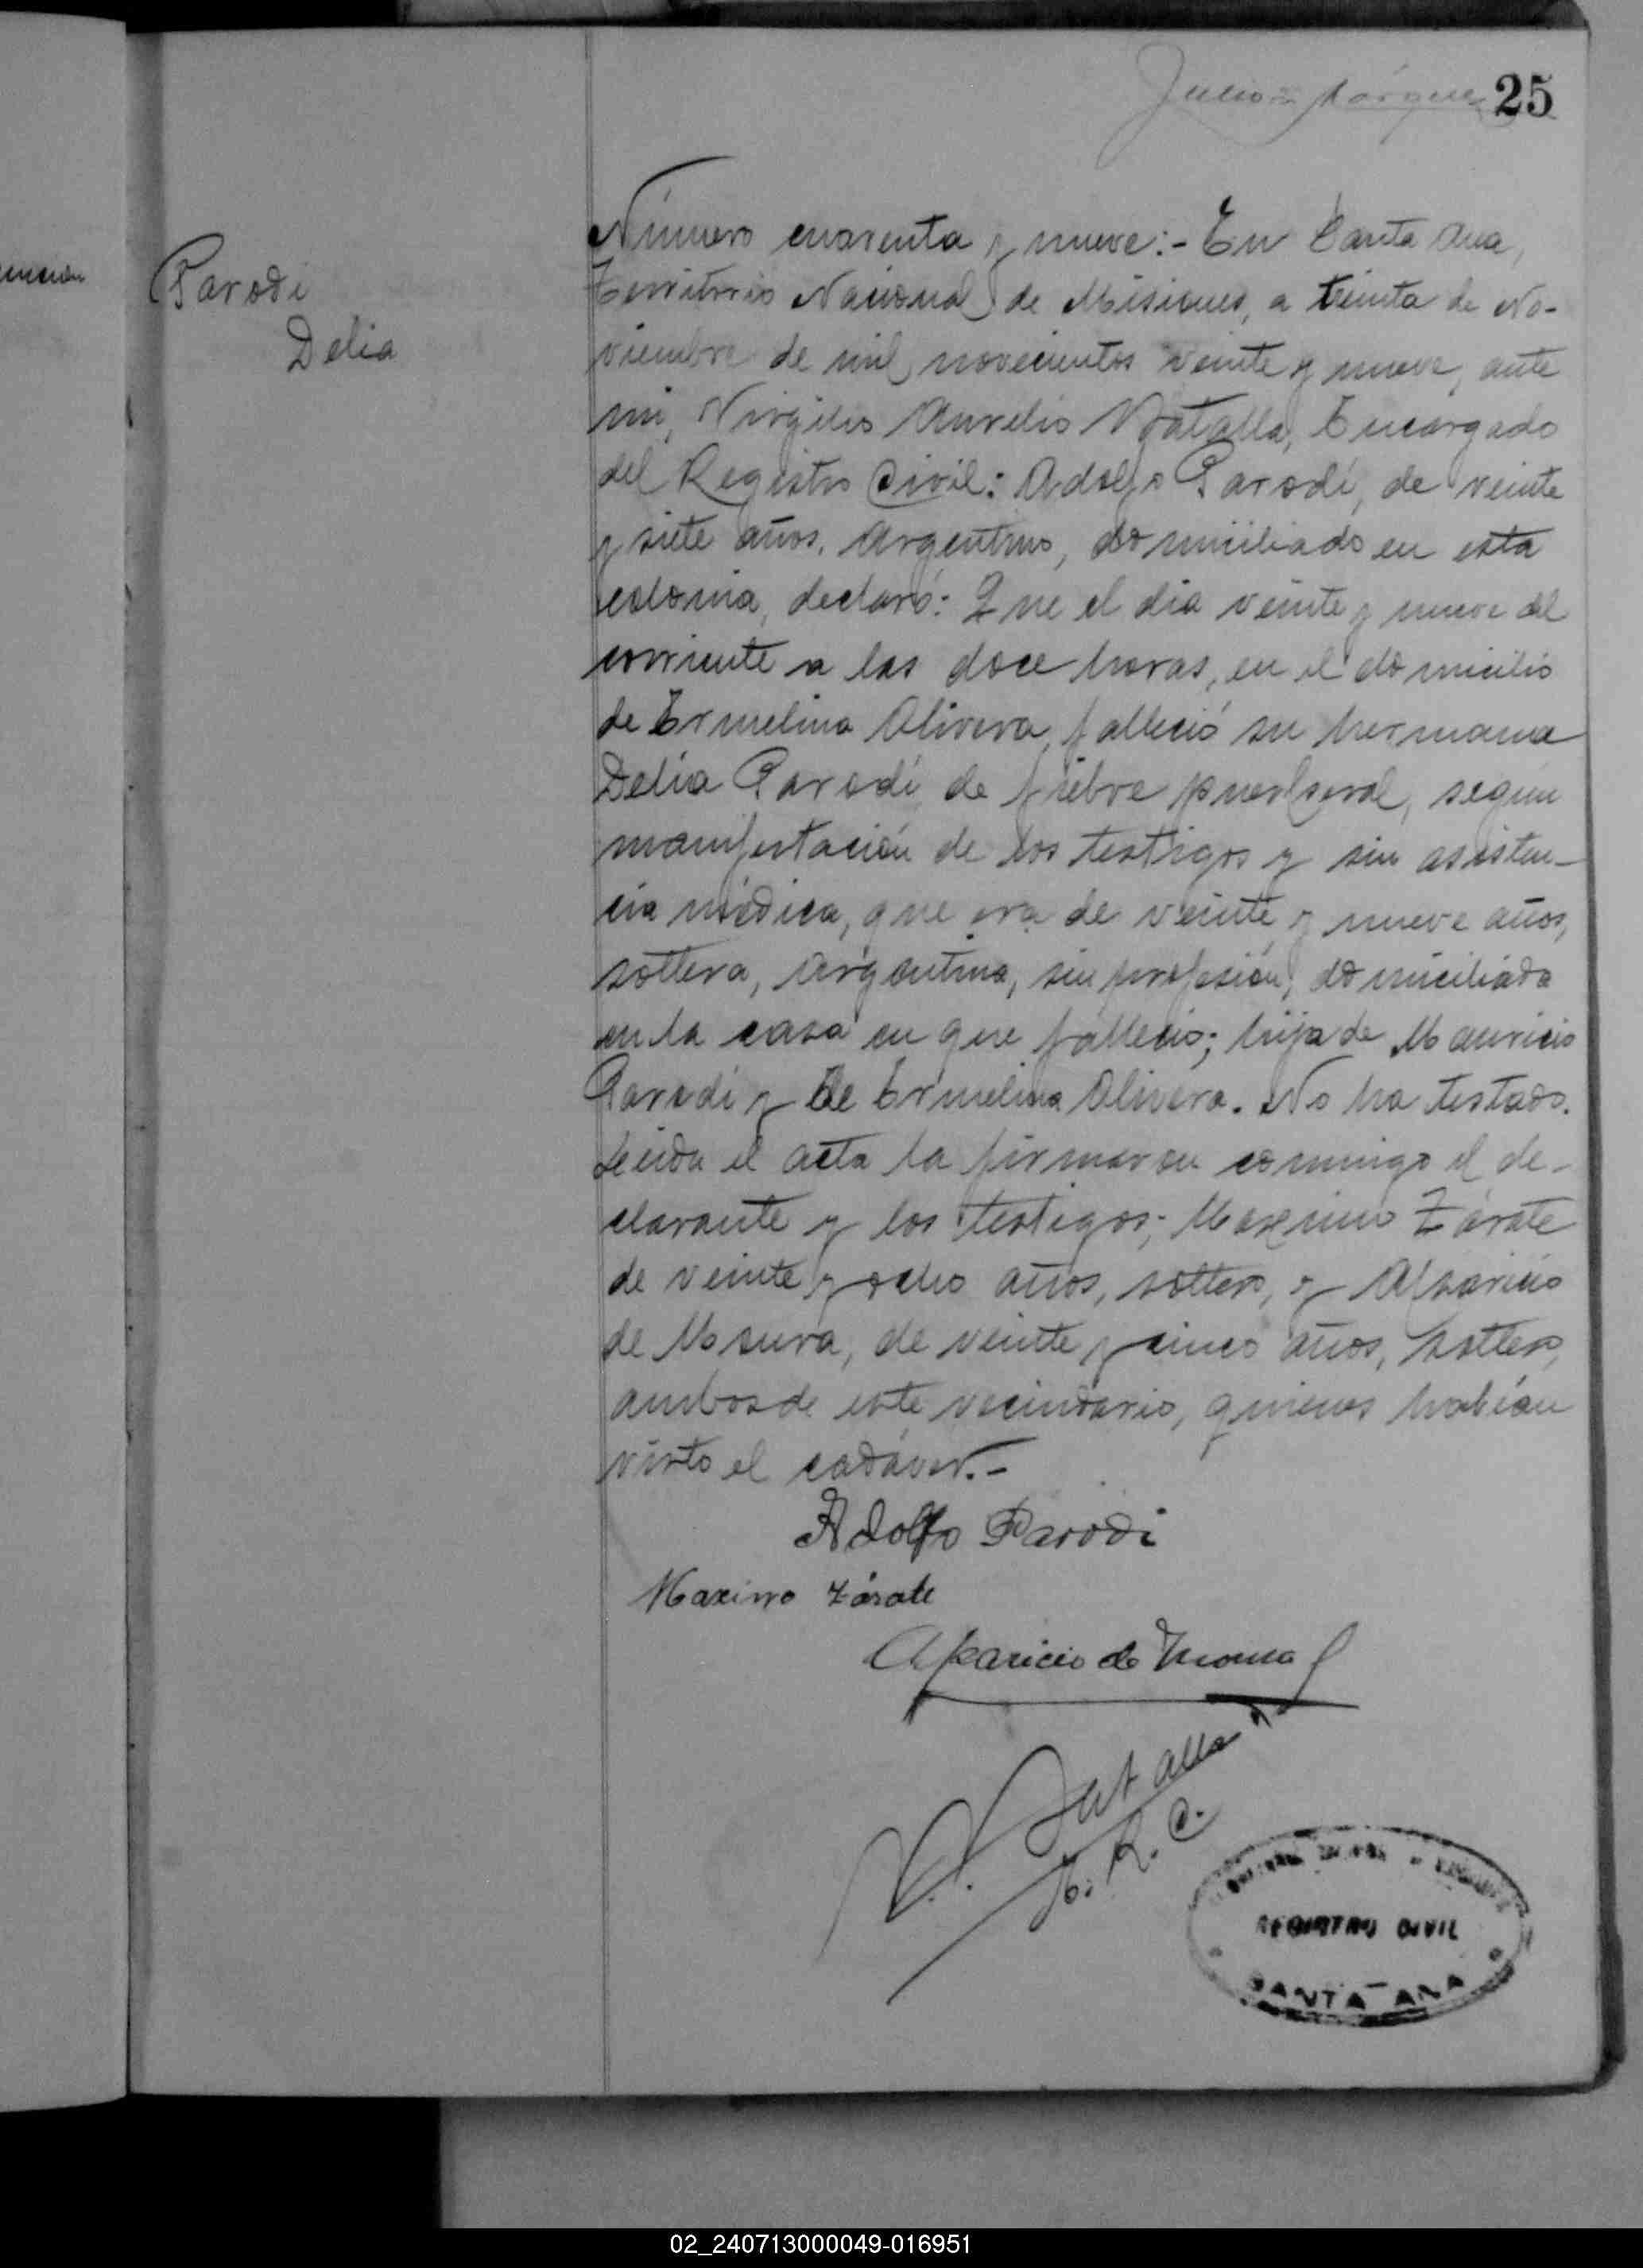 Julio Márquez 25
Parodi
Delia
Número cuarenta y nueve:- En Santa Ana,
Territorio Nacional de Misiones, a treinta de No-
viembre de mil novecientos veinte y nueve, ante
mi, Virgilio Aurelio Batalla, Encargado
del Registro Civil: Adolfo Parodi, de veinte
y siete años, Argentino, domiciliado en esta
colonia, declaró: Que el dia veinte y nueve del
corriente a las doce horas, en el domicilio
de Ermelina Olivera, falleció su hermana
Delia Parodi, de fiebre puerperal, según
manifestación de los testigos y sin asisten-
cia médica, que era de veinte y nueve años,
soltera, Argentina, sin profesión, domiciliada
en la casa en que falleció; hija de Mauricio
Parodi y de Ermelina Olivera. No ha testado.
Leida el acta la firmaron conmigo el de-
clarante y los testigos; Maximo Zárate
de veinte y ocho años, soltero, y Aparicio
de Moura, de veinte y cinco años, soltero,
ambos de este vecindario, quienes habían
visto el cadáver.-
Adolfo Parodi
Maximo Zárate
Aparicio de Moura
V. A. Batalla
E. R. C.
REGISTRO CIVIL
SANTA ANA
02_240713000049-016951